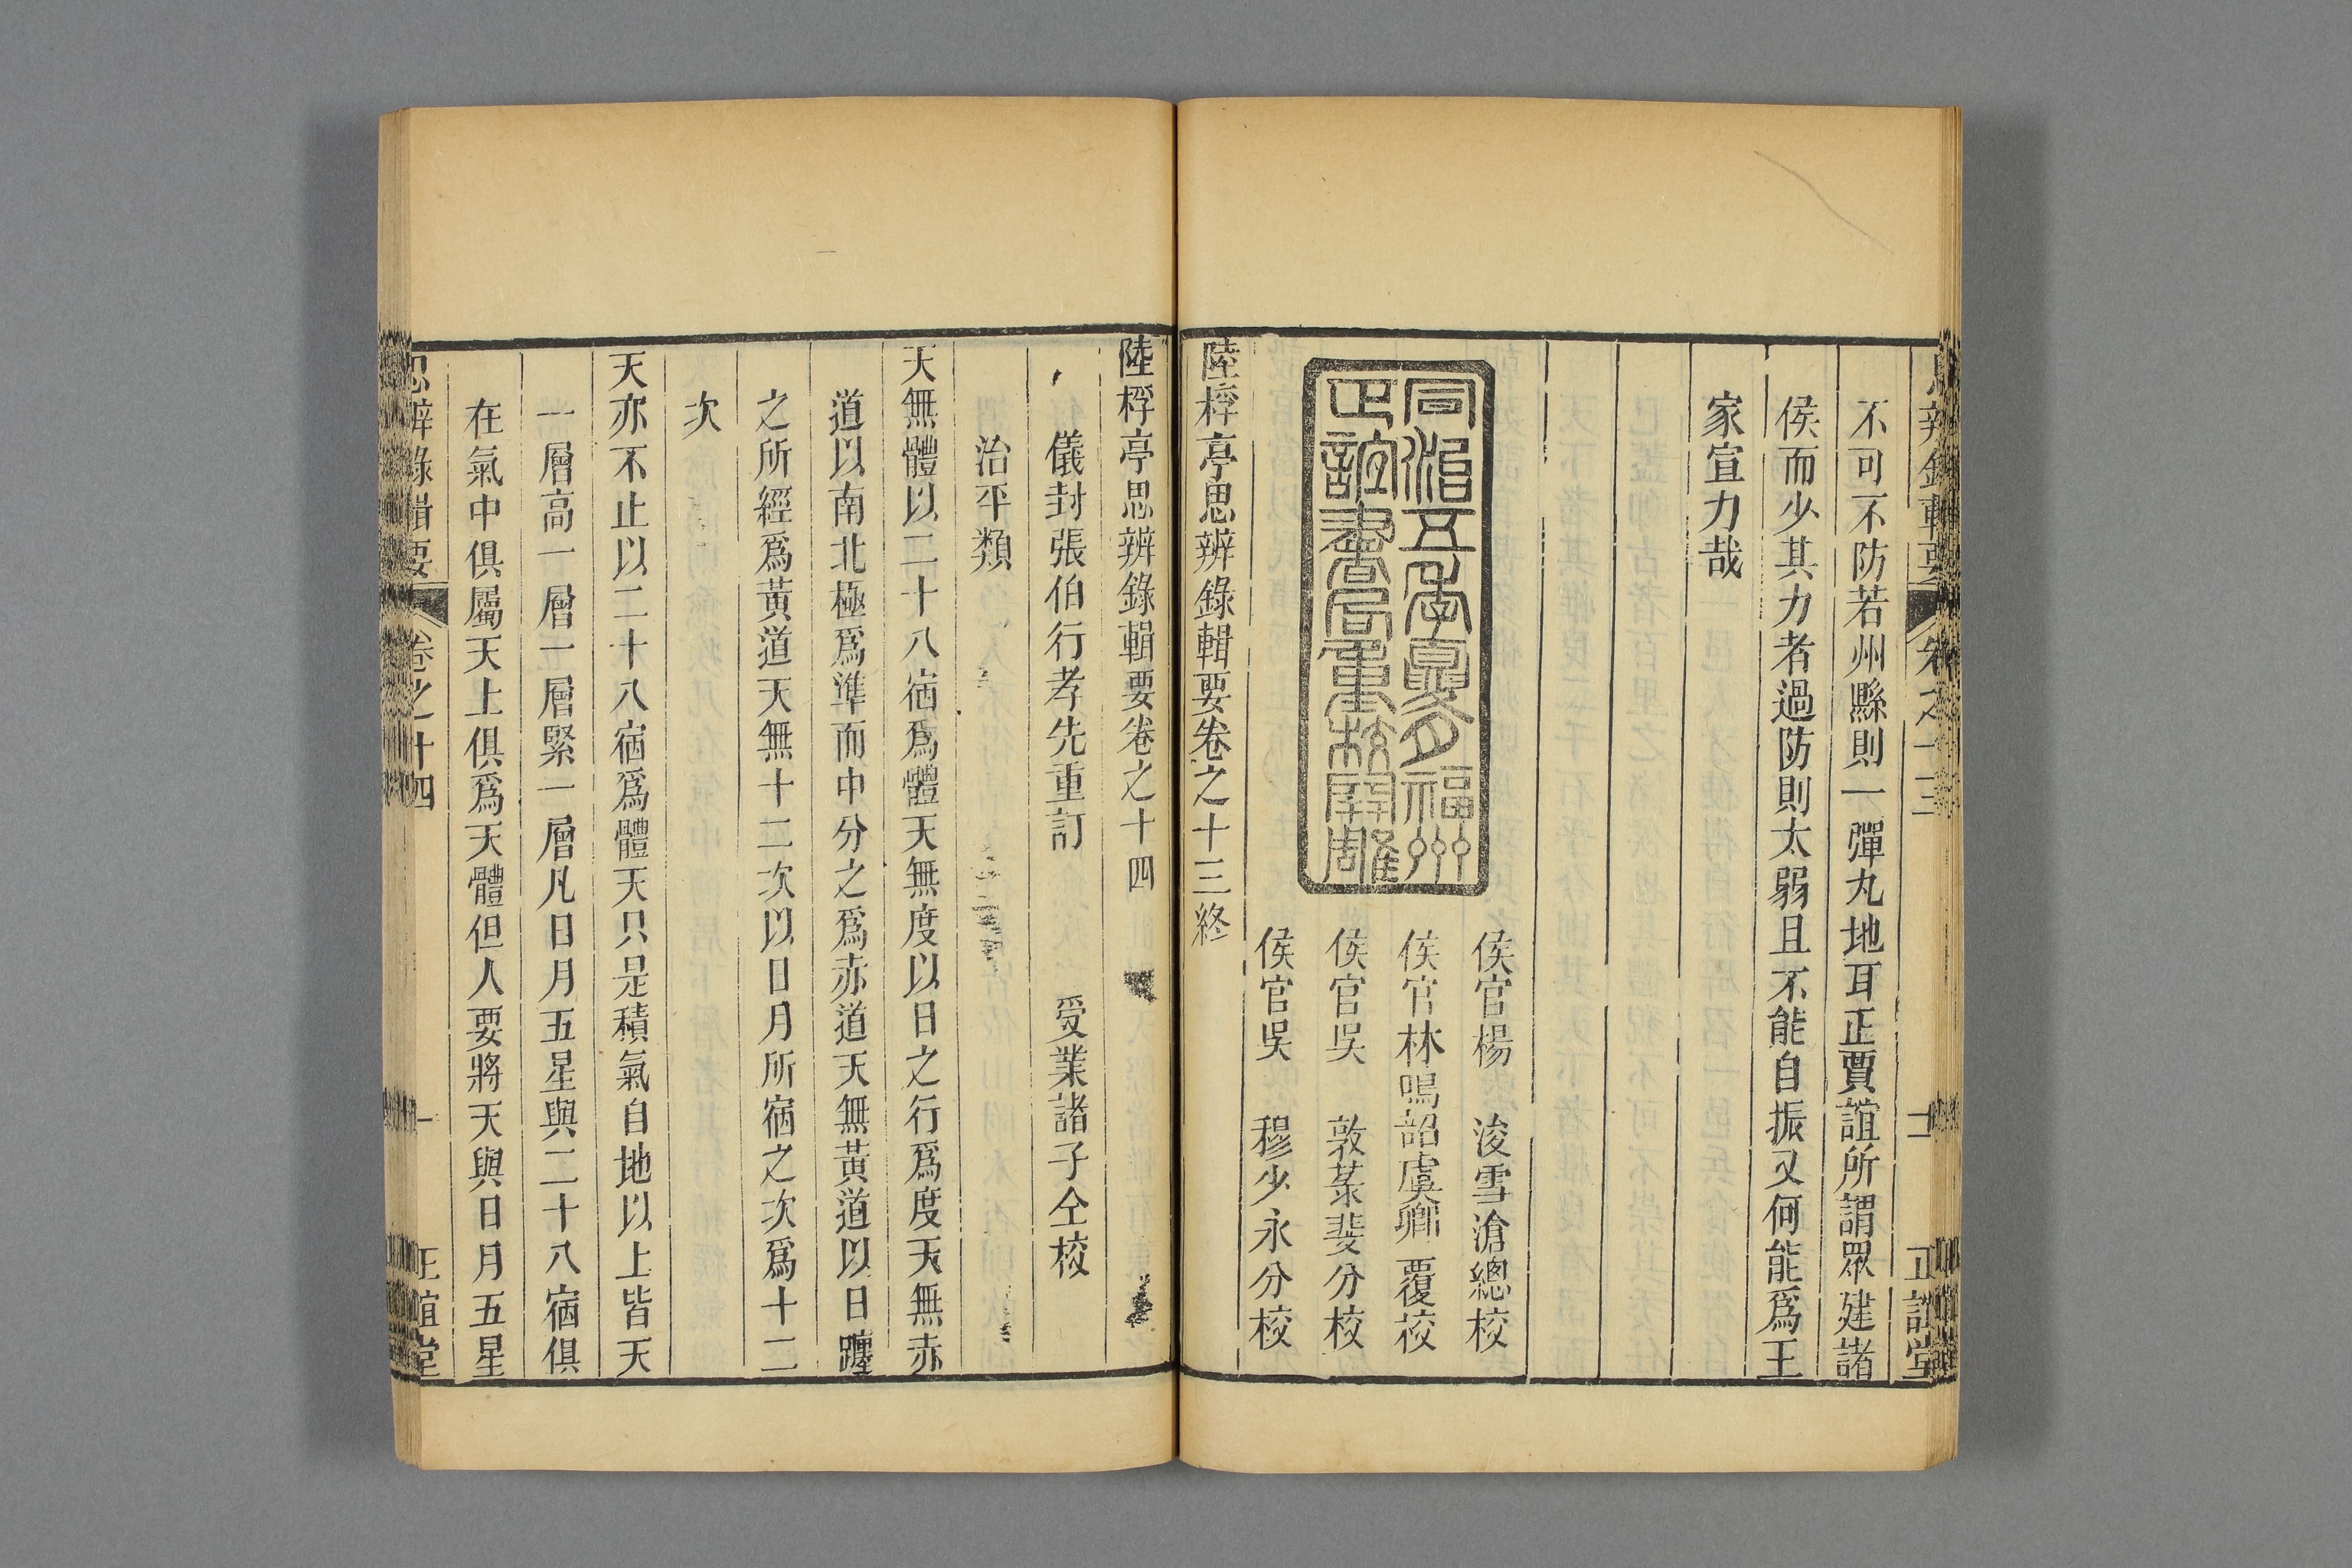 思辨錄輯要 卷之十三 十一 正誼堂
不可不防若州縣則一彈丸地耳正賈誼所謂眾建諸
侯而少其力者過防則太弱且不能自振又何能爲王
家宣力哉
同治五年夏月福州
正誼書局重校開雕
侯官楊 浚雪滄總校
侯官林鳴韶虞卿覆校
侯官吳 敦菉斐分校
侯官吳 穆少永分校
陸桴亭思辨錄輯要卷之十三終
陸桴亭思辨錄輯要卷之十四
儀封張伯行孝先重訂 受業諸子仝校
治平類
天無體以二十八宿爲體天無度以日之行爲度天無赤
道以南北極爲準而中分之爲赤道天無黃道以日躔
之所經爲黃道天無十二次以日月所宿之次爲十二
次
天亦不止以二十八宿爲體天只是積氣自地以上皆天
一層高一層一層緊一層凡日月五星與二十八宿俱
在氣中俱屬天上俱爲天體但人要將天與日月五星
思辨錄輯要 卷之十四 一 正誼堂